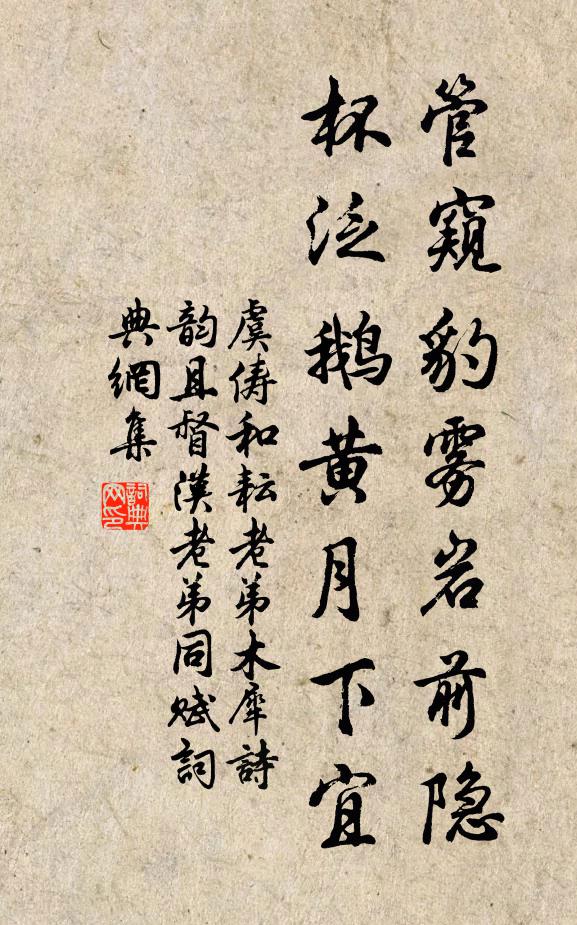 管窺豹雾岩前隐
杯泛鹅黄月下宜
虞俦和耘老弟木犀詩
韵且督漢老弟同赋詞
典網集
詞典
网印